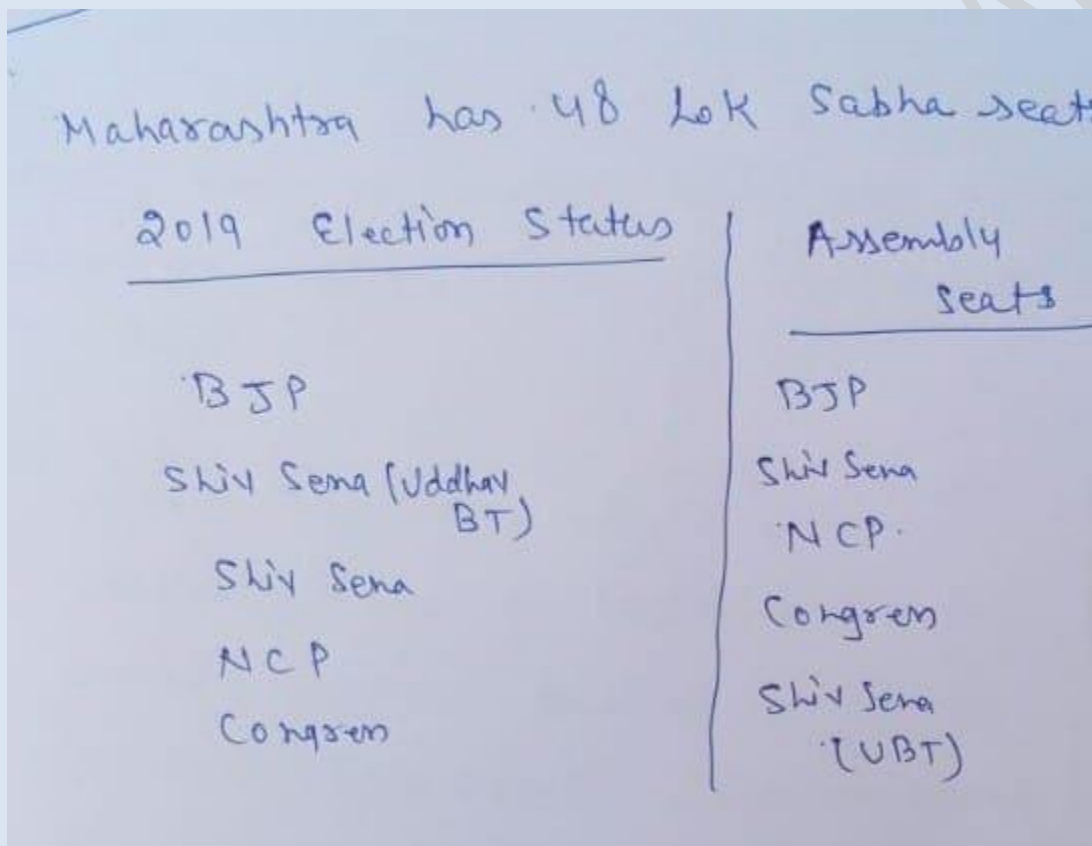 Maharashtra has 48 Lok Sabha seats
2019 Election Status
BJP
Shiv Sena (Uddhav
BT)
Shiv Sena
NCP
Congress
Assembly
Seats
BJP
Shiv Sena
NCP.
Congress
Shiv Sena
(UBT)